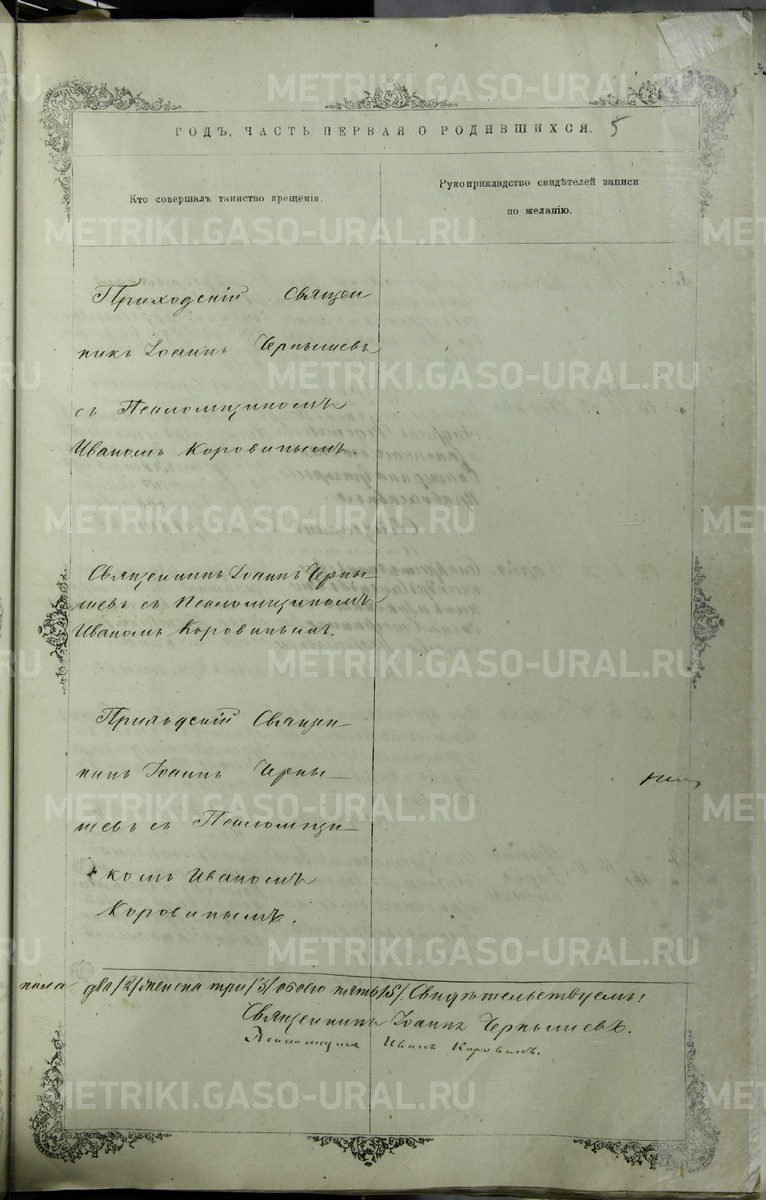 ГОДЪ, ЧАСТЬ ПЕРВАЯ О РОДИВШИХСЯ. 5
Кто совершалъ таинство крещенія.
Рукоприкладство свидѣтелей записи
по желанію.
Приходскій Священ
никъ Іоаннъ Чернышевъ
съ Псаломщикомъ
Иваномъ Коровинымъ.
Священникъ Іоаннъ Черны-
шевъ съ Псаломщикомъ
Иваномъ Коровинымъ.
Приходскій Священ-
никъ Іоаннъ Черны-
шевъ съ Псаломщи-
комъ Иваномъ
Коровинымъ.
пола два /2/ женска три /3/ обоего пять /5/. Свидѣтельствуемъ:
Священникъ Іоаннъ Чернышевъ.
Псаломщикъ Иванъ Коровинъ.
METRIKI.GASO-URAL.RU